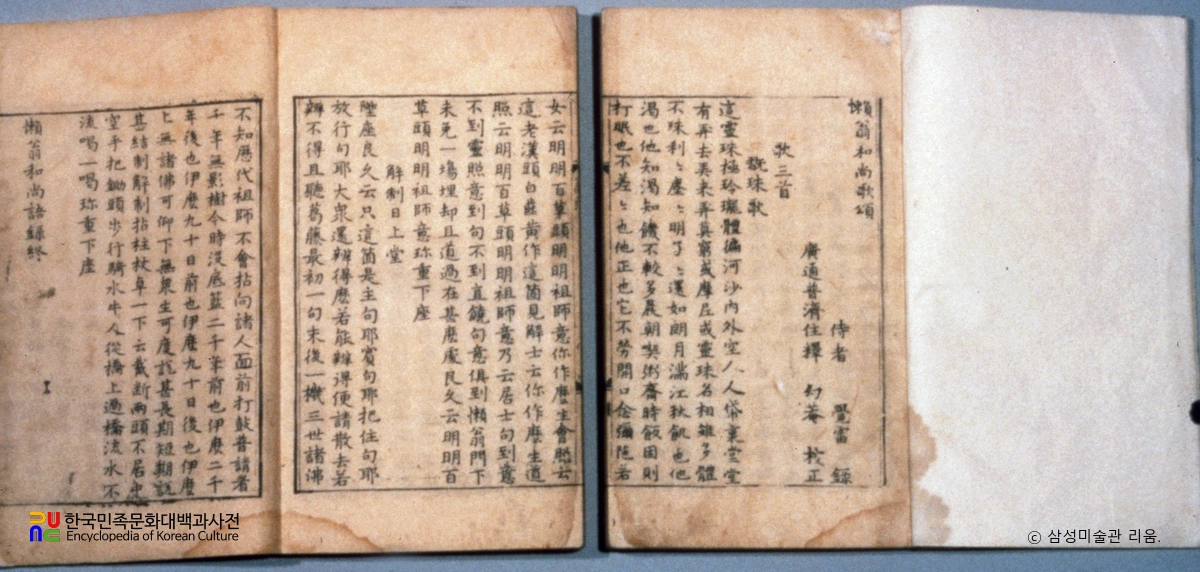 懶翁和尚歌頌
侍者 覺雷 録
廣通普濟住釋 幻菴 挍正
歌三首
翫珠歌
這靈珠極玲瓏體徧河沙內外空人人帒裏堂堂
有弄去弄來弄莫窮或摩尼或靈珠名相雖多體
不殊刹刹塵塵明了了還如朗月滿江秋飢也他
渴也他知渴知飢不較多晨朝喫粥齋時飯困則
打眠也不差差也他正也它不勞開口念彌陁若
女云明明百草頭明明祖師意你作麽生會照云
這老漢頭白齒黃作這箇見解士云你作麽生道
照云明明百草頭明明祖師意乃云居士句到意
不到靈照意到句不到直饒句意俱到懶翁門下
未免一塲埋却且道過在甚麽處良久云明明百
草頭明明祖師意珎重下座
解制日上堂
陞座良久云只這箇是主句耶賓句耶把住句耶
放行句耶大衆還辨得麽若能辨得便請散去若
辨不得且聽葛藤最初一句末後一機三世諸佛
不知歷代祖師不會拈向諸人面前打鼓普請看
千年無影樹今時沒底籃二千年前也伊麽二千
年後也伊麽九十日前也伊麽九十日後也伊麽
上無諸佛可仰下無衆生可度說甚長期短期說
甚結制解制拈柱杖卓一下云截斷兩頭不居中
空手把鋤頭步行騎水牛人從橋上過橋流水不
流喝一喝珎重下座
懶翁和尚語録終
한국민족문화대백과사전
Encyclopedia of Korean Culture
ⓒ 삼성미술관 리움.